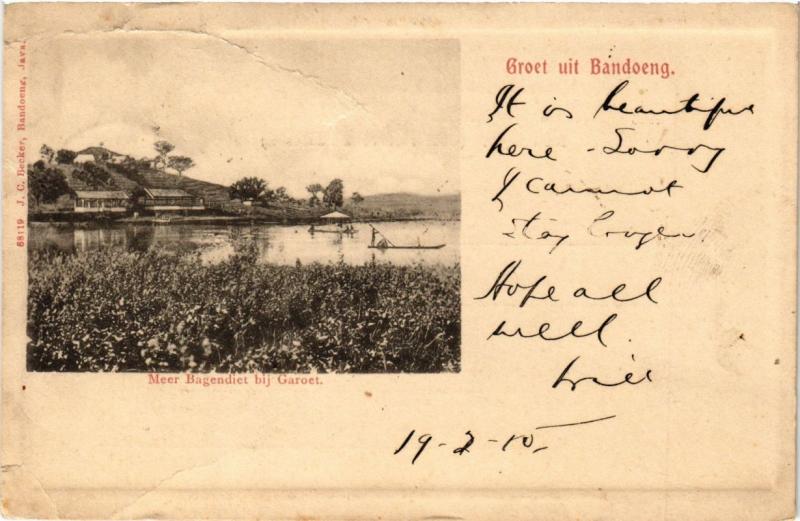 68119 J. C. Becker, Bandoeng, Java.
Groet uit Bandoeng.
It is beautiful
here - Sorry
I cannot
stay longer
Hope all
well.
Will
19-2-10
Meer Bagendiet bij Garoet.